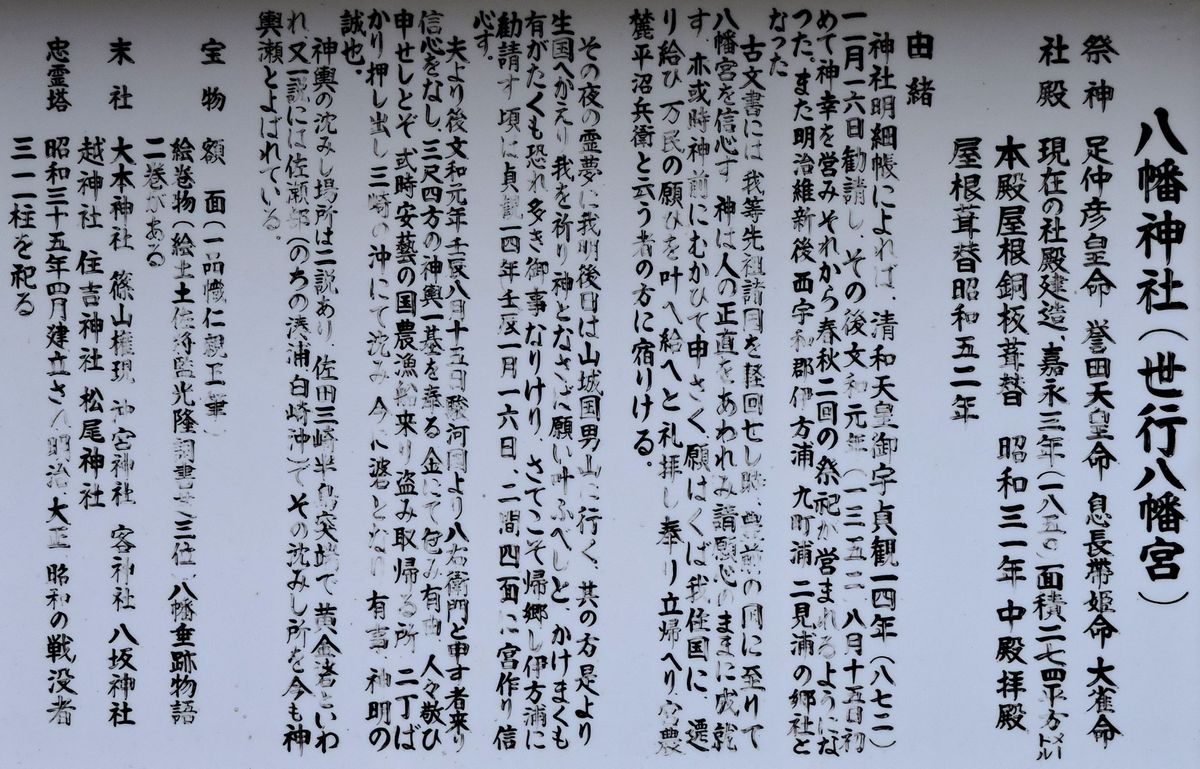 八幡神社（世行八幡宮）
祭神　足仲彦皇命　誉田天皇命　息長帯姫命　大雀命
社殿　現在の社殿建造、嘉永三年（一八五〇　面積二七四平方メートル
本殿屋根銅板葺替　昭和三一年　中殿拝殿
屋根葺替昭和五二年
由緒
神社明細帳によれば、清和天皇御宇貞観一四年（八七二）
一一月一六日勧請し、その後文和元年（一三五二、八月十五日初
めて神幸を営みそれから春秋二回の祭祀が営まれるようにな
った。また明治維新後西宇和郡伊方浦、九町浦、二見浦の郷社と
なった
古文書には我等先祖諸国を経回せし時、豊前の国に至りて
八幡宮を信心す　神は人の正直をあわれみ請願心のままに成就
す、亦或時神前にむかひて申さく、願はくば我住国に、遷
り給ひ万民の願ひを叶へ給へと礼拝し奉り立帰へり、宮農
麓平沼兵衛と云う者の方に宿りける。
その夜の霊夢に我明後日は山城国男山に行く、其の方是より
生国へかえり我を祈り神となさば願い叶ふべしと、かけまくも
有がたくも恐れ多き御事なりけり、さてこそ帰郷し伊方浦に
勧請す頃に貞観一四年壬辰一月一六日、二間四面に宮作り信
心す。
夫より後文和元年壬辰八月十五日駿河国より八右衛門と申す者来り
信心をなし、三尺四方の神輿一基を奉る金にて包み有由　人々敬ひ
申せしとぞ、或時安藝の国農漁船来り盗み取帰る所　二丁ば
かり押し出し三崎の沖にて沈み　今に礎となり　有事　神明の
誠也。
神輿の沈みし場所は二説あり、佐田三崎半島突端で黄金渚といわ
れ、又一説には佐瀬部（のちの湊浦白崎沖）で　その沈みし所を今も神
輿瀬とよばれている。
宝物　額　面（一品幟仁親王筆）
絵巻物（絵土土佐将監光隆詞書　三位　八幡垂跡物語
二巻がある
末社　大本神社　篠山権現　神宮神社　客神社　八坂神社
越神社　住吉神社　松尾神社
忠霊塔　昭和三十五年四月建立さ　明治　大正　昭和の戦没者
三一一柱を祀る